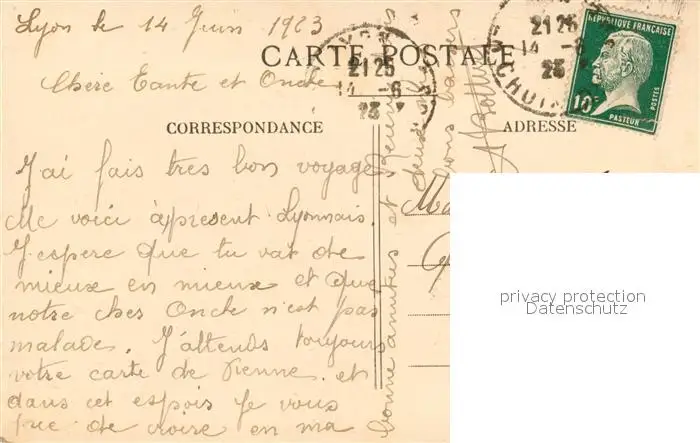 Lyon le 14 Juin 1923
CARTE POSTALE
Chère Tante et Oncle
CORRESPONDANCE
J'ai fais tres bon voyage
Me voici àpresent Lyonnais.
J'espere que tu vat de
mieux en mieux et que
notre cher Oncle n'est pas
malade. J'attends toujours
votre carte de Vienne. et
dans cet espoir je vous
prie de croire en ma
bonne amities et
bons baisers
ADRESSE
2125
14 -6
23
2125
14 -6
23
REPUBLIQUE FRANÇAISE
10c
POSTES
PASTEUR
privacy protection
Datenschutz